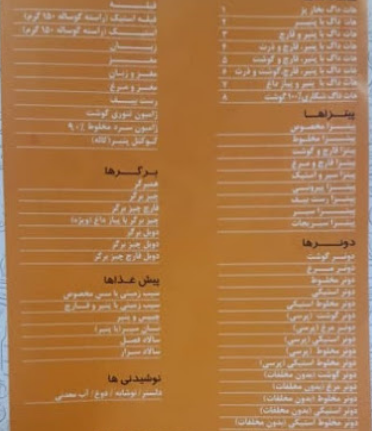 هات داگ بخار پز ۱
هات داگ با پنیر ۲
هات داگ با پنیر و قارچ ۳
هات داگ با پنیر، قارچ و ذرت ۴
هات داگ با پنیر، قارچ و گوشت ۵
هات داگ با پنیر، قارچ، گوشت و ذرت ۶
هات داگ با پنیر و پیاز داغ ۷
هات داگ شکاری ۱۰۰٪ گوشت ۸
پیتزاها
پیتزا مخصوص
پیتزا مخلوط
پیتزا قارچ و گوشت
پیتزا قارچ و مرغ
پیتزا سیر و استیک
پیتزا پپرونی
پیتزا رست بیف
پیتزا سیر
پیتزا سبزیجات
دونرها
دونر گوشت
دونر مرغ
دونر مخلوط
دونر استیکی
دونر مخلوط استیکی
دونر گوشت (پرسی)
دونر مرغ (پرسی)
دونر استیکی (پرسی)
دونر مخلوط (پرسی)
دونر مخلوط استیکی (پرسی)
دونر گوشت (بدون مخلفات)
دونر مرغ (بدون مخلفات)
دونر مخلوط (بدون مخلفات)
دونر استیکی (بدون مخلفات)
دونر مخلوط استیکی (بدون مخلفات)
فیله
فیله استیک (راسته گوساله ۱۵۰ گرم)
استیک (راسته گوساله ۱۵۰ گرم)
زبان
مغز
مغز و زبان
مغز و مرغ
رست بیف
ژامبون تنوری گوشت
ژامبون سرد مخلوط ۹۰٪
کوکتل پنیر (کاله)
برگرها
همبرگر
چیز برگر
قارچ چیز برگر
چیز برگر با پیاز داغ (ویژه)
دوبل برگر
دوبل چیز برگر
دوبل قارچ چیز برگر
پیش غذاها
سیب زمینی با سس مخصوص
سیب زمینی با پنیر و قارچ
چیپس و پنیر
نان سیر (با پنیر)
سالاد فصل
سالاد سزار
نوشیدنی ها
دلستر / نوشابه / دوغ / آب معدنی